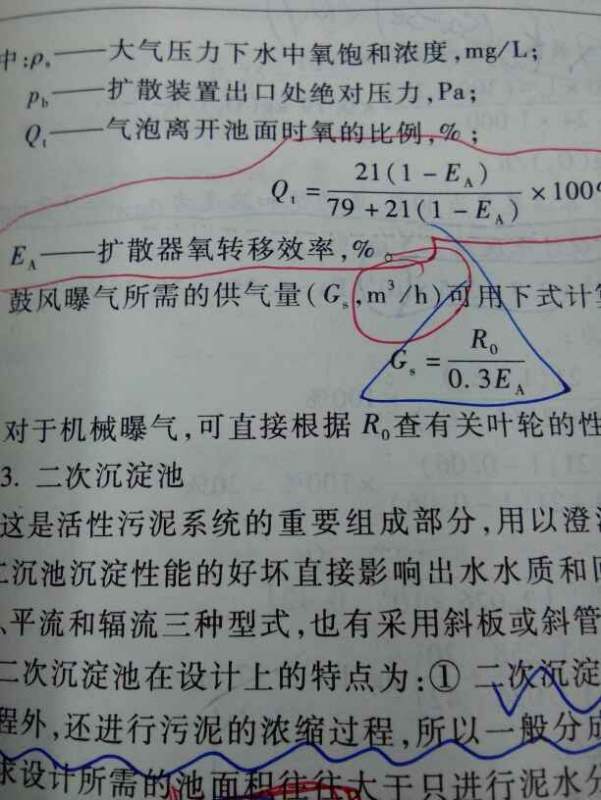 中:ρₛ——大气压力下水中氧饱和浓度,mg/L;
p_b——扩散装置出口处绝对压力,Pa;
Q_t——气泡离开池面时氧的比例,%;
Q_t = 21(1 − E_A) / 79 + 21(1 − E_A) × 100%
E_A——扩散器氧转移效率,%。
鼓风曝气所需的供气量(Gₛ,m³/h)可用下式计
Gₛ = R₀ / 0.3E_A
对于机械曝气,可直接根据 R₀查有关叶轮的性
3. 二次沉淀池
这是活性污泥系统的重要组成部分,用以澄
二沉池沉淀性能的好坏直接影响出水水质和
、平流和辐流三种型式,也有采用斜板或斜管
二次沉淀池在设计上的特点为:① 二次沉淀
程外,还进行污泥的浓缩过程,所以一般分成
求设计所需的池面积往往大于只进行泥水分